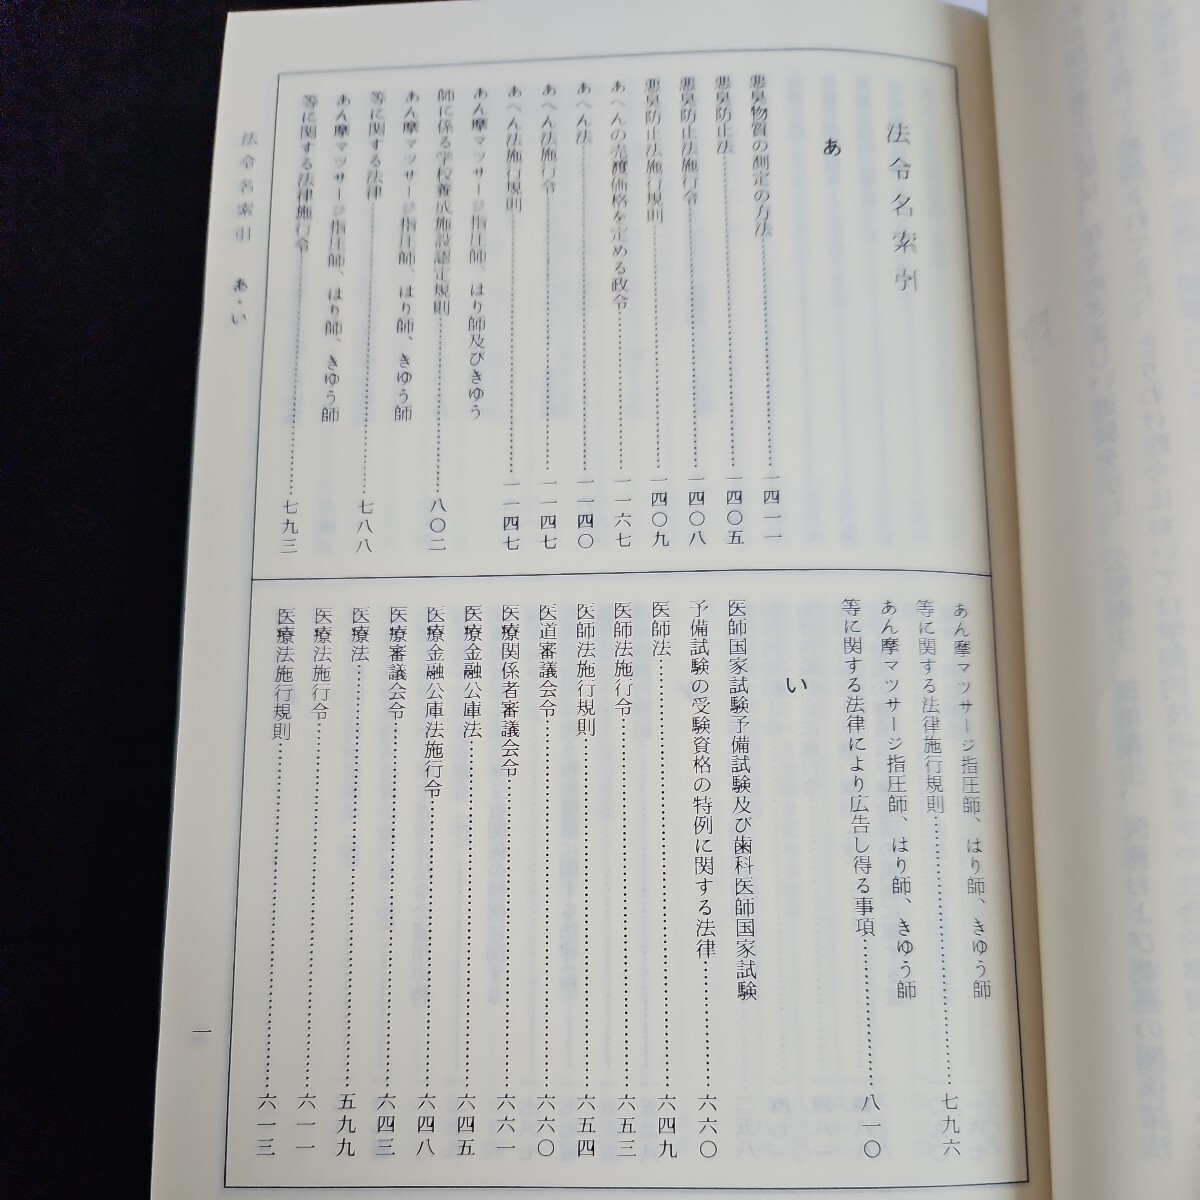 法令名索引
あ
悪臭物質の測定の方法……一四一一
悪臭防止法……一四〇五
悪臭防止法施行令……一四〇八
悪臭防止法施行規則……一四〇九
あへんの売渡価格を定める政令……一一六七
あへん法……一一四〇
あへん法施行令……一一四七
あへん法施行規則……一一四七
あん摩マツサージ指圧師、はり師及びきゆう
師に係る学校養成施設認定規則……八〇二
あん摩マツサージ指圧師、はり師、きゆう師
等に関する法律……七八八
あん摩マツサージ指圧師、はり師、きゆう師
等に関する法律施行令……七九三
あん摩マツサージ指圧師、はり師、きゆう師
等に関する法律施行規則……七九六
あん摩マツサージ指圧師、はり師、きゆう師
等に関する法律により広告し得る事項……八一〇
い
医師国家試験予備試験及び歯科医師国家試験
予備試験の受験資格の特例に関する法律……六六〇
医師法……六四九
医師法施行令……六五三
医師法施行規則……六五四
医道審議会令……六六〇
医療関係者審議会令……六六一
医療金融公庫法……六四五
医療金融公庫法施行令……六四八
医療審議会令……六四三
医療法……五九九
医療法施行令……六一一
医療法施行規則……六一三
法令名索引 あ・い
一